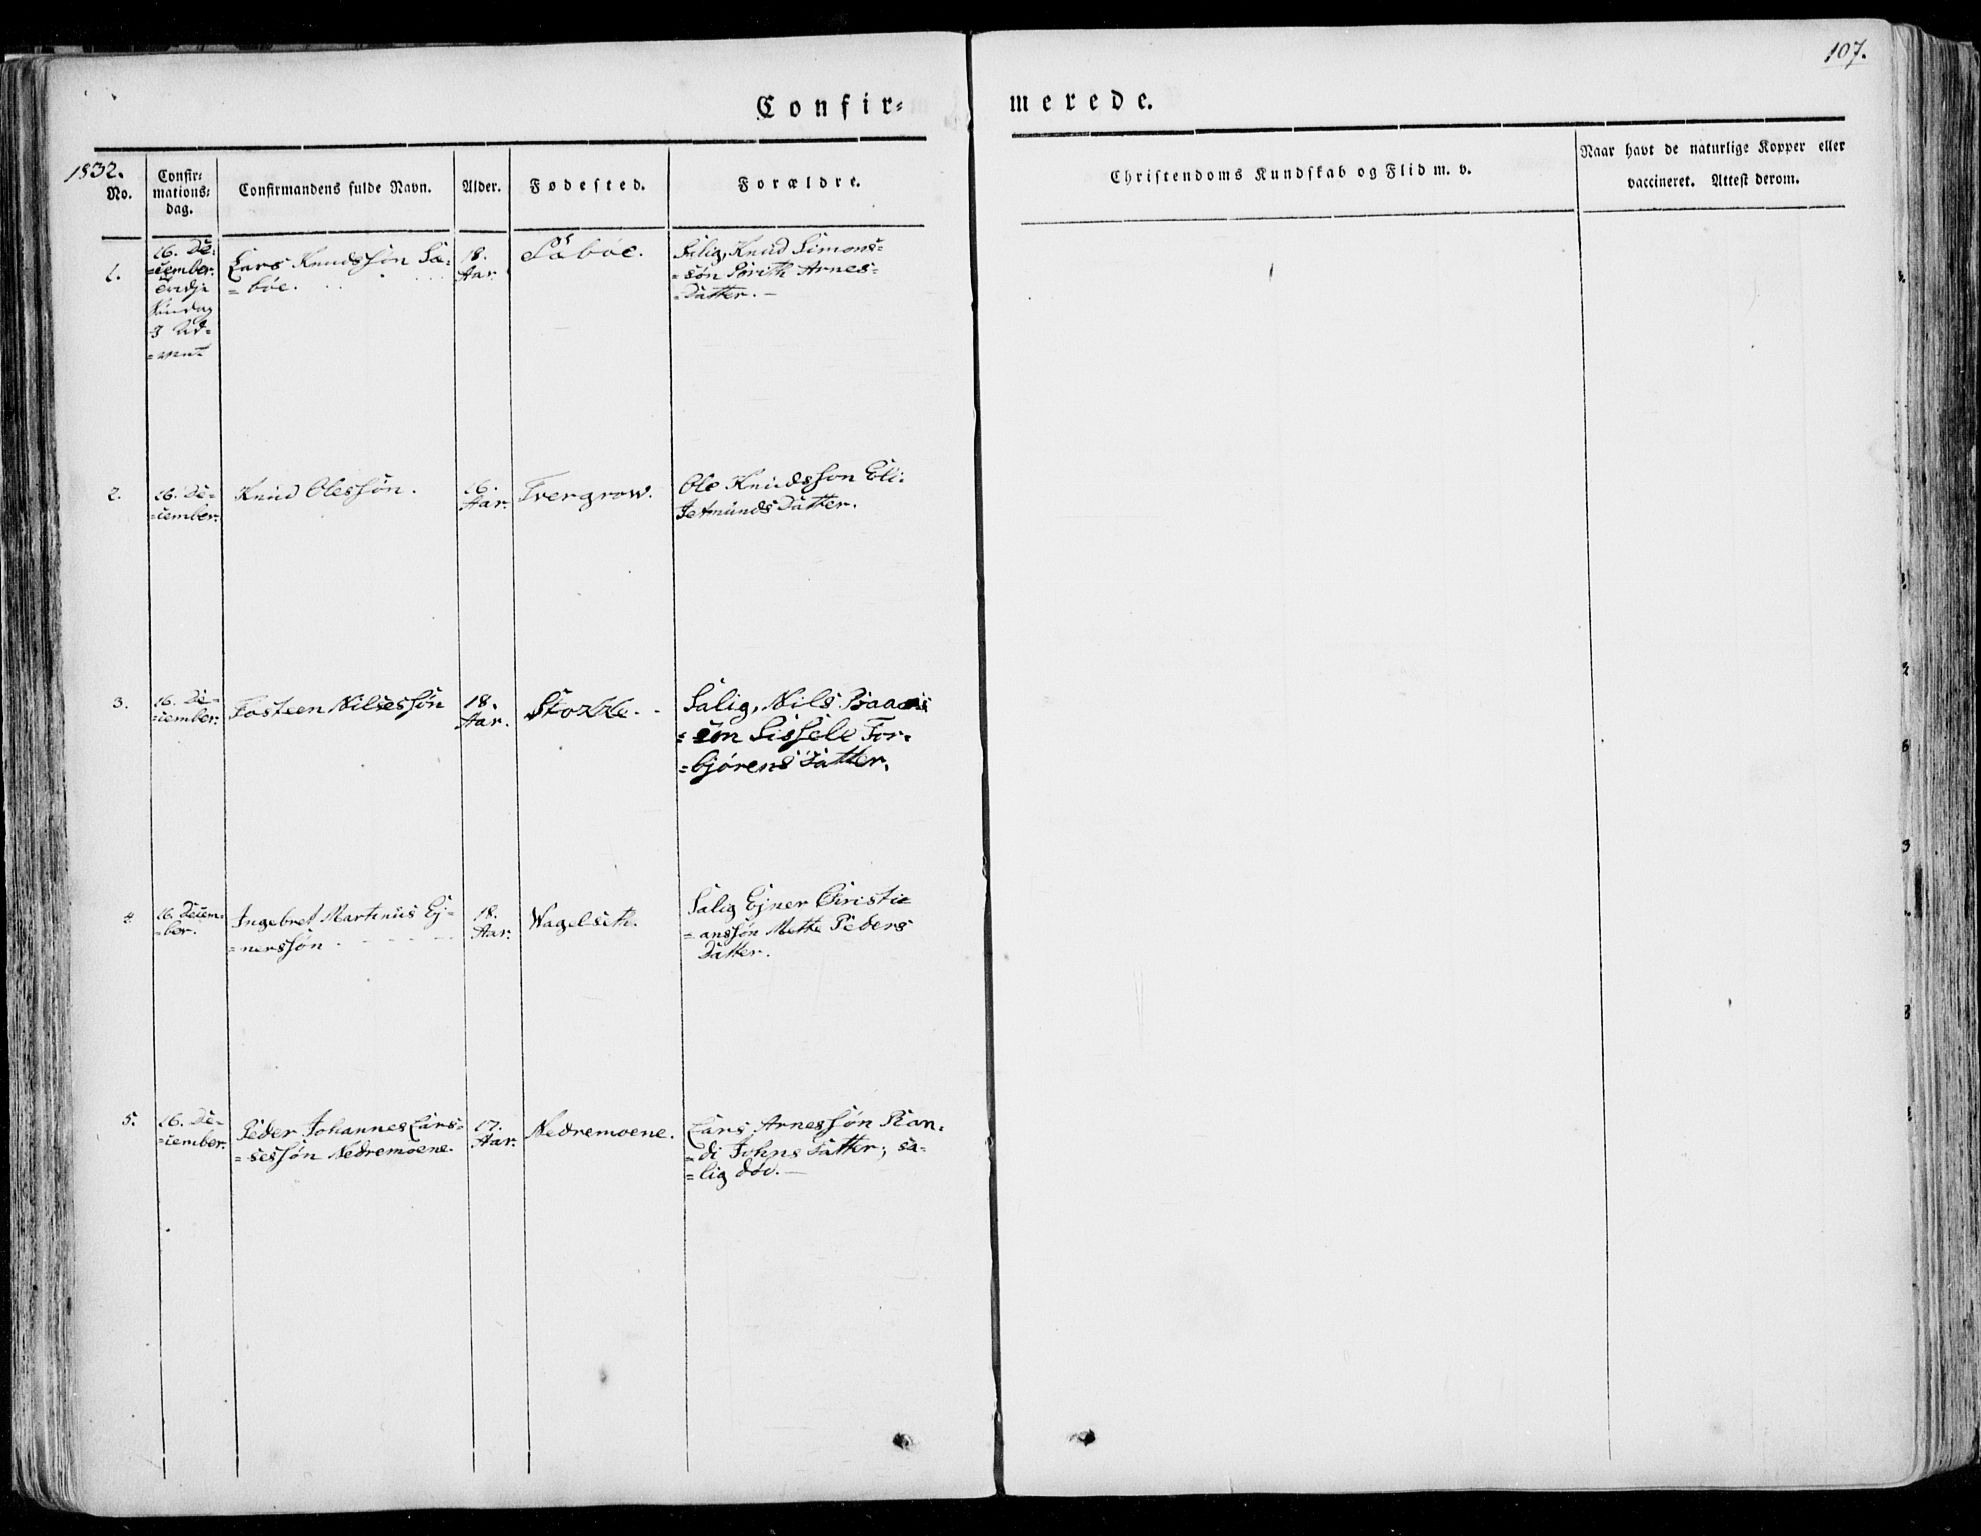 107.
Confir-
merede.
1832.
No.
Confir-
mations-
dag.
Confirmandens fulde Navn.
Alder.
Fødested.
Forældre.
Christendoms Kundskab og Flid m. v.
Naar havt de naturlige Kopper eller
vaccineret. Attest derom.
1.
16. De-
=cember.
Søndag
3 Ad-
=vent
Lars Knudssøn Sa-
=bøe.
18.
Aar.
Sabøe.
Salig, Knud Simons-
=søn Arnes-
=Datter. -
2.
16. De-
=cember.
Knud Olessøn.
16.
Aar.
Tvergrow.
Ole Knudsson Eli.
Jetmunds Datter.
3.
16. De-
=cember.
Tosteen Nilsessøn
18.
Aar.
Stokke. -
Salig, Nils
=søn Sissele Tor-
=bjørens Datter.
4
16. Decem-
=ber.
Ingebret Martinus Ej-
=nerssøn.
18.
Aar.
Wagelseth.
Salig Ejner Christi
=anssøn Mette Peders
Datter.
5.
16. De-
=cember.
Peder Johannes Lars-
=sessøn Nedremoene.
17.
Aar.
Nedremoene.
Lars Arnessøn Ran-
=di Johns Datter; sa-
=lig død. -